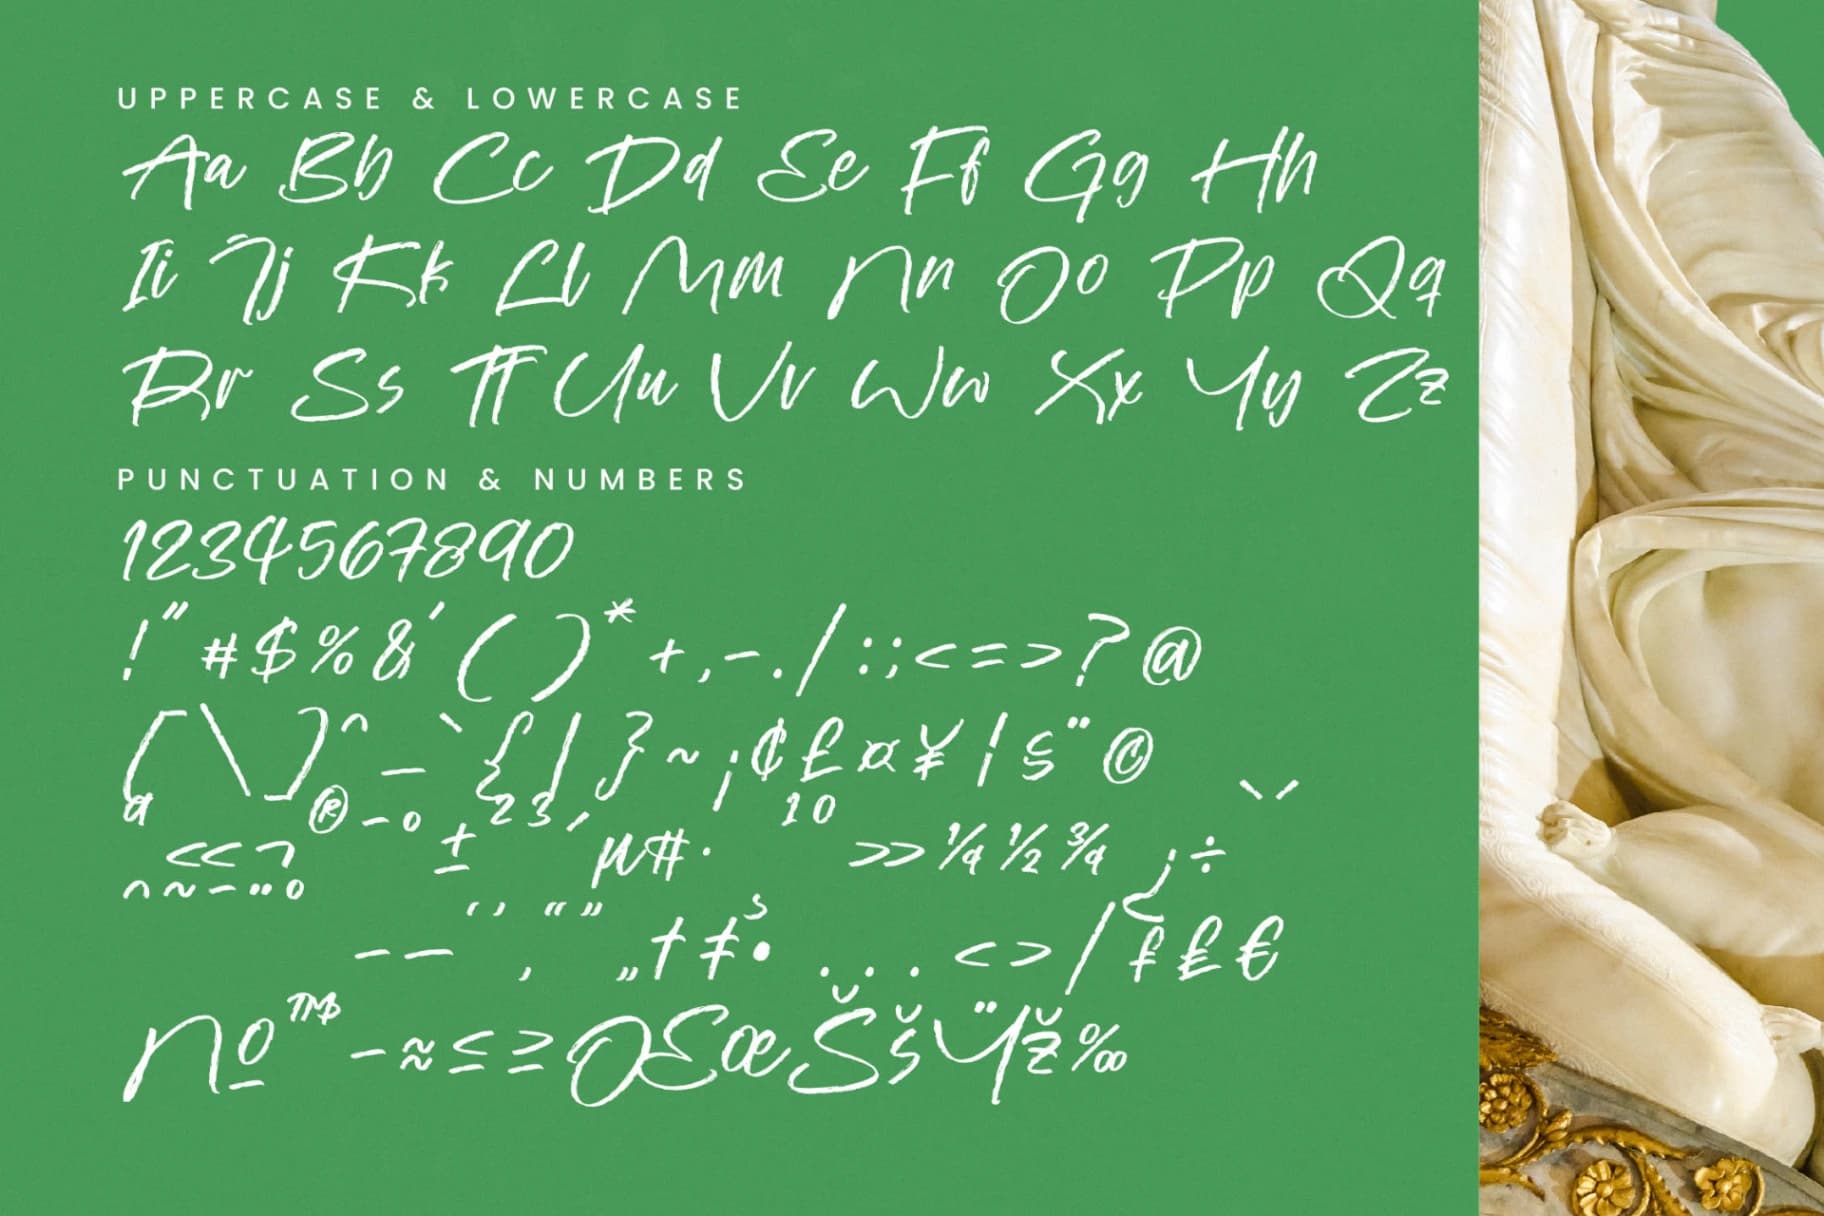 UPPERCASE & LOWERCASE
Aa Bb Cc Dd Ee Ff Gg Hh
Ii Jj Kk Ll Mm Nn Oo Pp Qq
Rr Ss Tt Uu Vv Ww Xx Yy Zz
PUNCTUATION & NUMBERS
1234567890
!"#$%&'()*+,-./:;<=>?@
[\]^_`{|}~¡¢£¤¥¦§¨©
ª«¬®¯°±²³´µ#·¹⁰»¼½¾¿÷
ˆ˜¯¨° – — ‘ ’ ‚ “ ” „ † ‡ • … ‹ › ⁄ ₣ ₤ €
№ ™ − ≈ ≤ ≥ Œ œ Š š Ÿ ž ‰